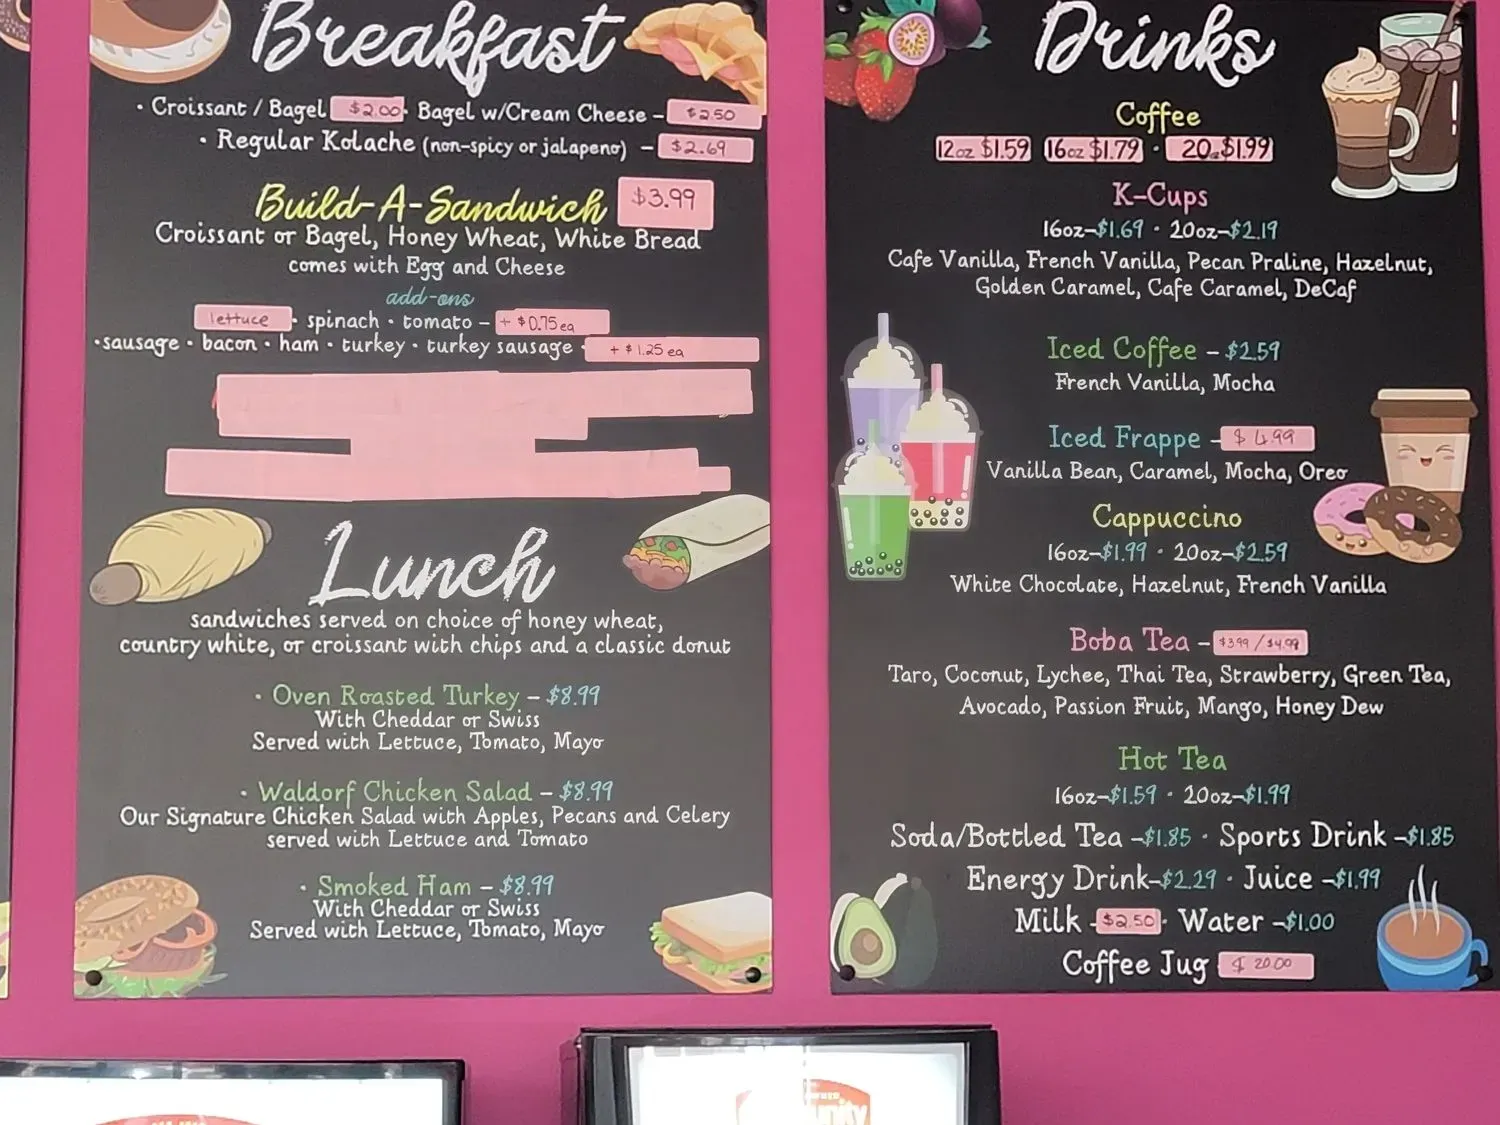 Breakfast
• Croissant / Bagel $2.00 • Bagel w/Cream Cheese – $2.50
• Regular Kolache (non-spicy or jalapeno) – $2.69
Build-A-Sandwich $3.99
Croissant or Bagel, Honey Wheat, White Bread
comes with Egg and Cheese
add-ons
lettuce • spinach • tomato – + $0.75 ea
•sausage • bacon • ham • turkey • turkey sausage + $1.25 ea
Lunch
sandwiches served on choice of honey wheat,
country white, or croissant with chips and a classic donut
• Oven Roasted Turkey – $8.99
With Cheddar or Swiss
Served with Lettuce, Tomato, Mayo
• Waldorf Chicken Salad – $8.99
Our Signature Chicken Salad with Apples, Pecans and Celery
served with Lettuce and Tomato
• Smoked Ham – $8.99
With Cheddar or Swiss
Served with Lettuce, Tomato, Mayo
Drinks
Coffee
12oz $1.59 16oz $1.79 • 20oz $1.99
K-Cups
16oz–$1.69 • 20oz–$2.19
Cafe Vanilla, French Vanilla, Pecan Praline, Hazelnut,
Golden Caramel, Cafe Caramel, DeCaf
Iced Coffee – $2.59
French Vanilla, Mocha
Iced Frappe – $4.99
Vanilla Bean, Caramel, Mocha, Oreo
Cappuccino
16oz–$1.99 • 20oz–$2.59
White Chocolate, Hazelnut, French Vanilla
Boba Tea – $3.99 / $4.99
Taro, Coconut, Lychee, Thai Tea, Strawberry, Green Tea,
Avocado, Passion Fruit, Mango, Honey Dew
Hot Tea
16oz–$1.59 • 20oz–$1.99
Soda/Bottled Tea –$1.85 • Sports Drink –$1.85
Energy Drink–$2.29 • Juice –$1.99
Milk –$2.50 • Water –$1.00
Coffee Jug $20.00